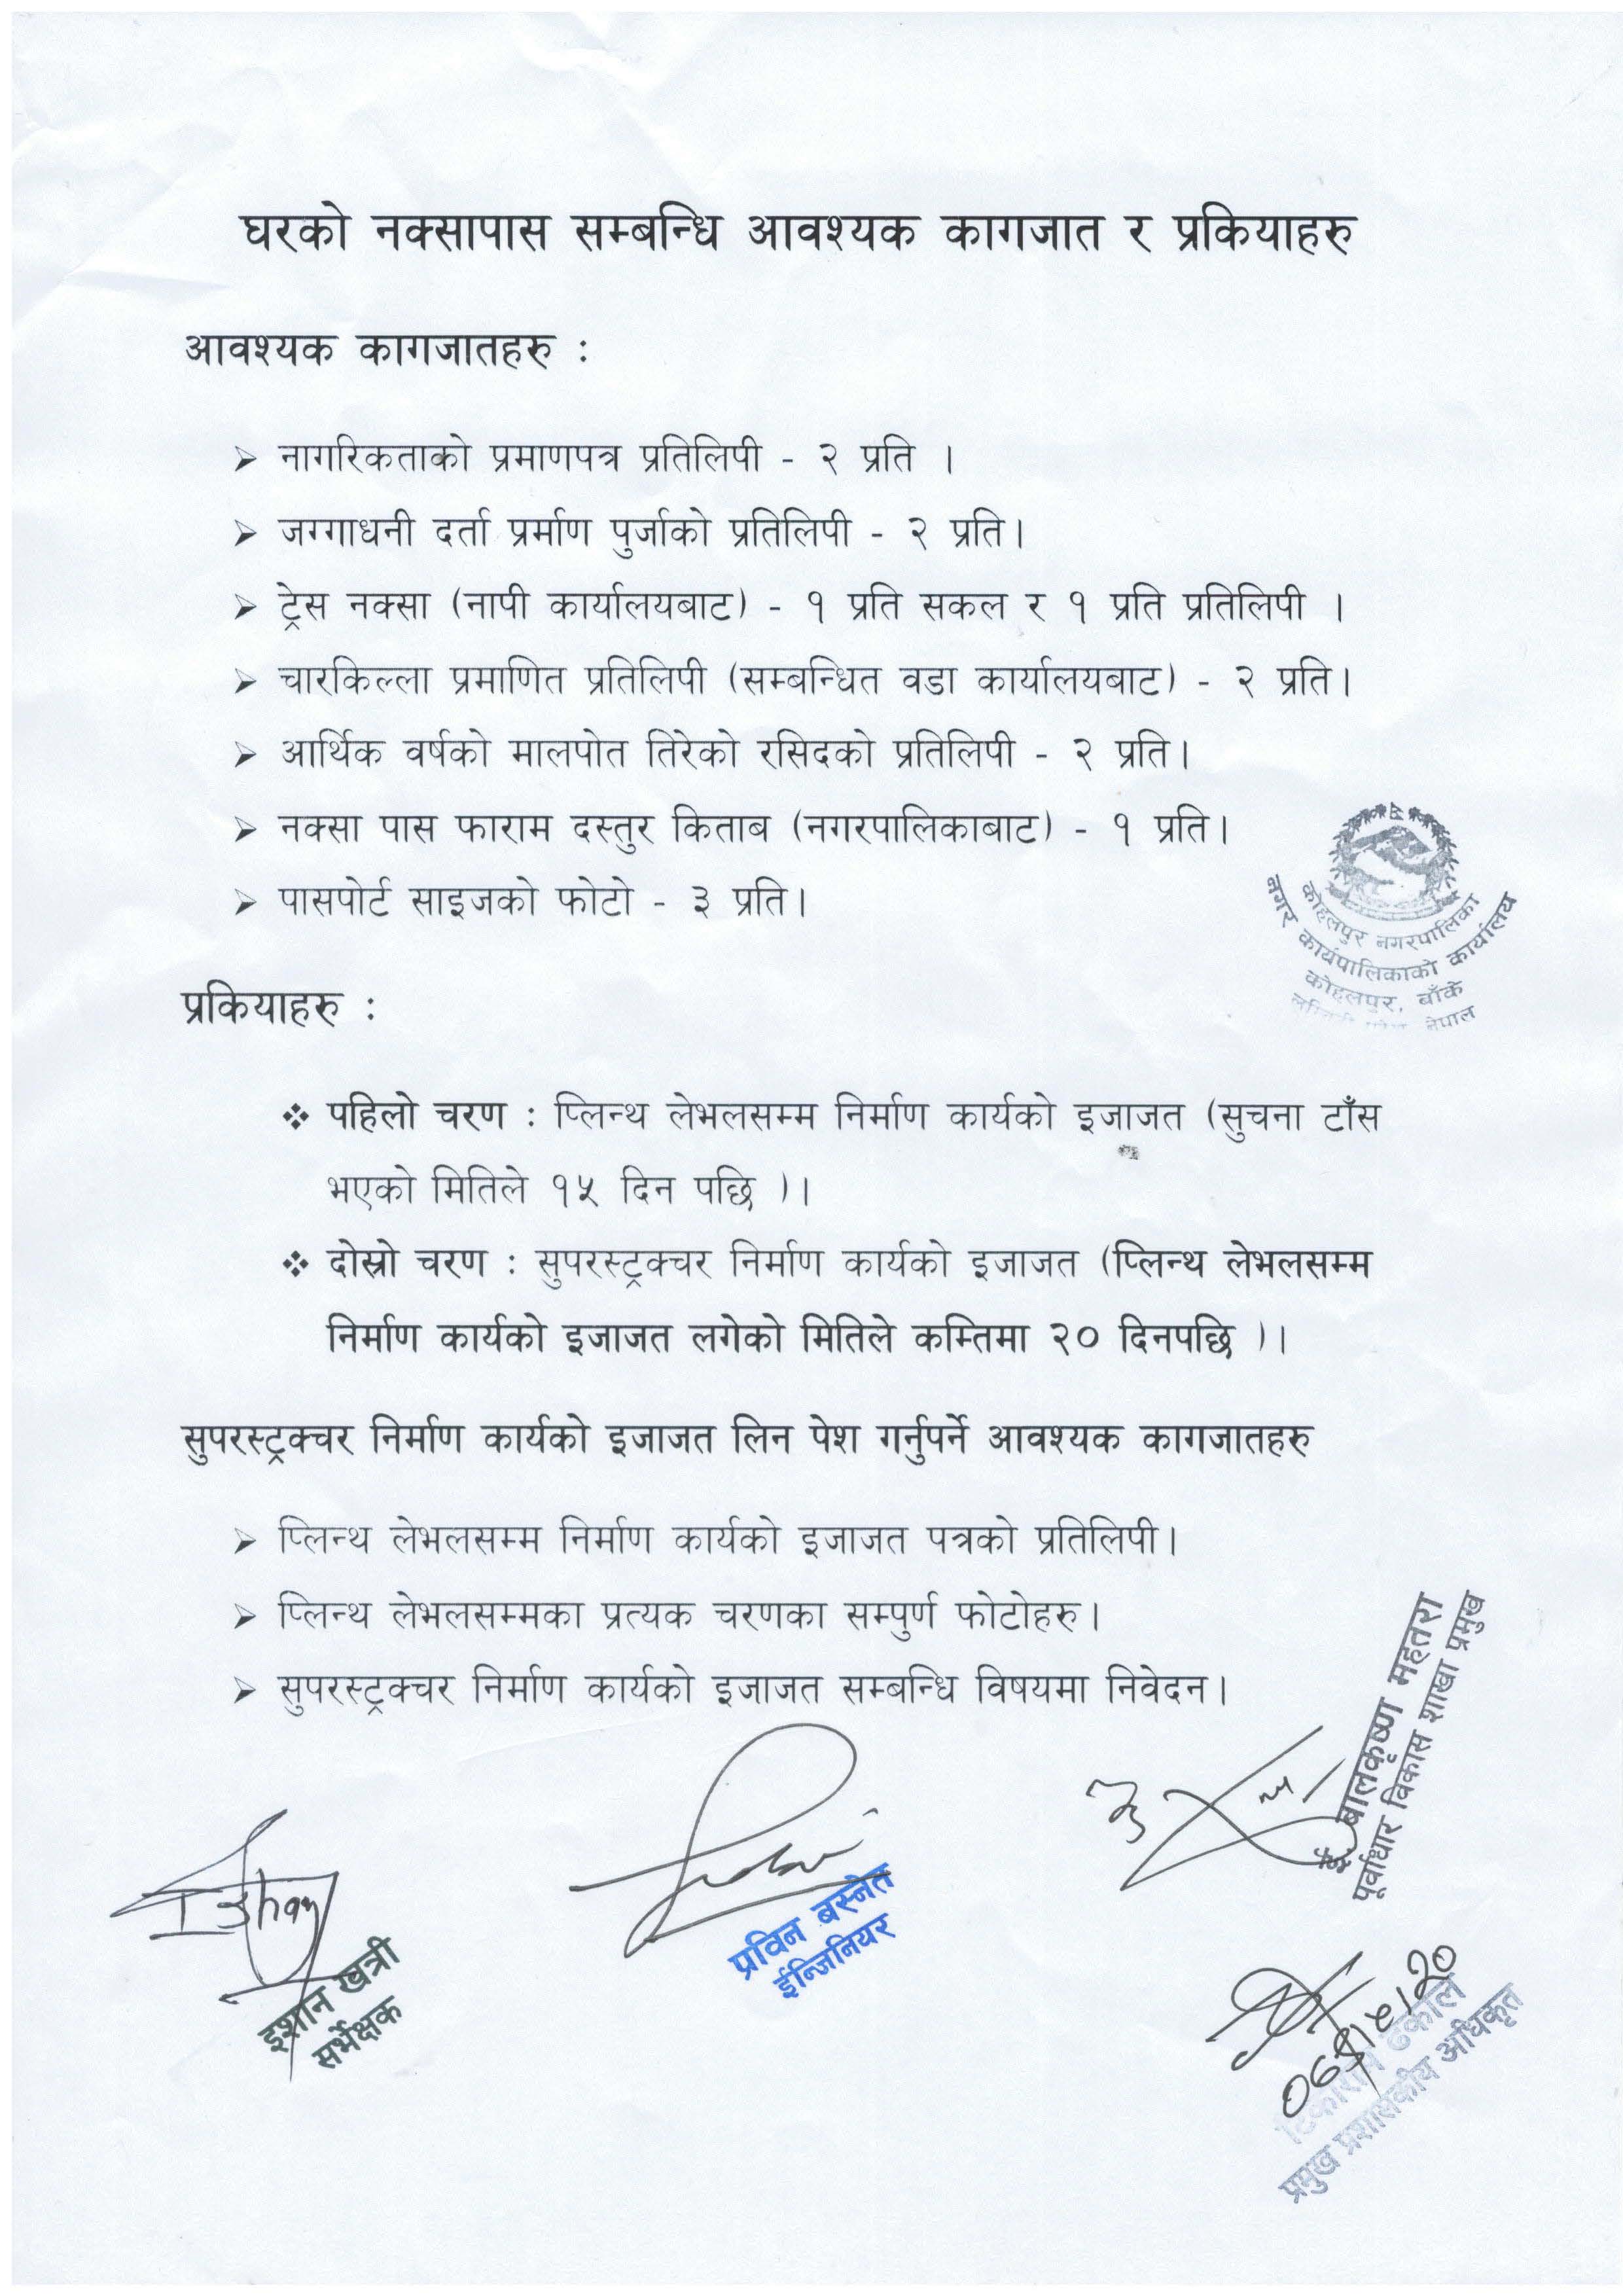 घरको नक्सापास सम्बन्धि आवश्यक कागजात र प्रकियाहरु
आवश्यक कागजातहरु :
➢ नागरिकताको प्रमाणपत्र प्रतिलिपी - २ प्रति ।
➢ जग्गाधनी दर्ता प्रर्माण पुर्जाको प्रतिलिपी - २ प्रति।
➢ ट्रेस नक्सा (नापी कार्यालयबाट) - १ प्रति सकल र १ प्रति प्रतिलिपी ।
➢ चारकिल्ला प्रमाणित प्रतिलिपी (सम्बन्धित वडा कार्यालयबाट) - २ प्रति।
➢ आर्थिक वर्षको मालपोत तिरेको रसिदको प्रतिलिपी - २ प्रति।
➢ नक्सा पास फाराम दस्तुर किताब (नगरपालिकाबाट) - १ प्रति।
➢ पासपोर्ट साइजको फोटो - ३ प्रति।
कोहलपुर नगरपालिका
नगर कार्यपालिकाको कार्यालय
कोहलपुर, बाँके
नेपाल
प्रकियाहरु :
❖ पहिलो चरण : प्लिन्थ लेभलसम्म निर्माण कार्यको इजाजत (सुचना टाँस
भएको मितिले १५ दिन पछि )।
❖ दोस्रो चरण : सुपरस्ट्रक्चर निर्माण कार्यको इजाजत (प्लिन्थ लेभलसम्म
निर्माण कार्यको इजाजत लगेको मितिले कम्तिमा २० दिनपछि )।
सुपरस्ट्रक्चर निर्माण कार्यको इजाजत लिन पेश गर्नुपर्ने आवश्यक कागजातहरु
➢ प्लिन्थ लेभलसम्म निर्माण कार्यको इजाजत पत्रको प्रतिलिपी।
➢ प्लिन्थ लेभलसम्मका प्रत्यक चरणका सम्पुर्ण फोटोहरु।
➢ सुपरस्ट्रक्चर निर्माण कार्यको इजाजत सम्बन्धि विषयमा निवेदन।
Ishan
इशान खत्री
सर्भेक्षक
प्रविन बस्नेत
ईन्जिनियर
ई. बालकृष्ण महतरा
पूर्वाधार विकास शाखा प्रमुख
टिकाराम ढकाल
प्रमुख प्रशासकीय अधिकृत